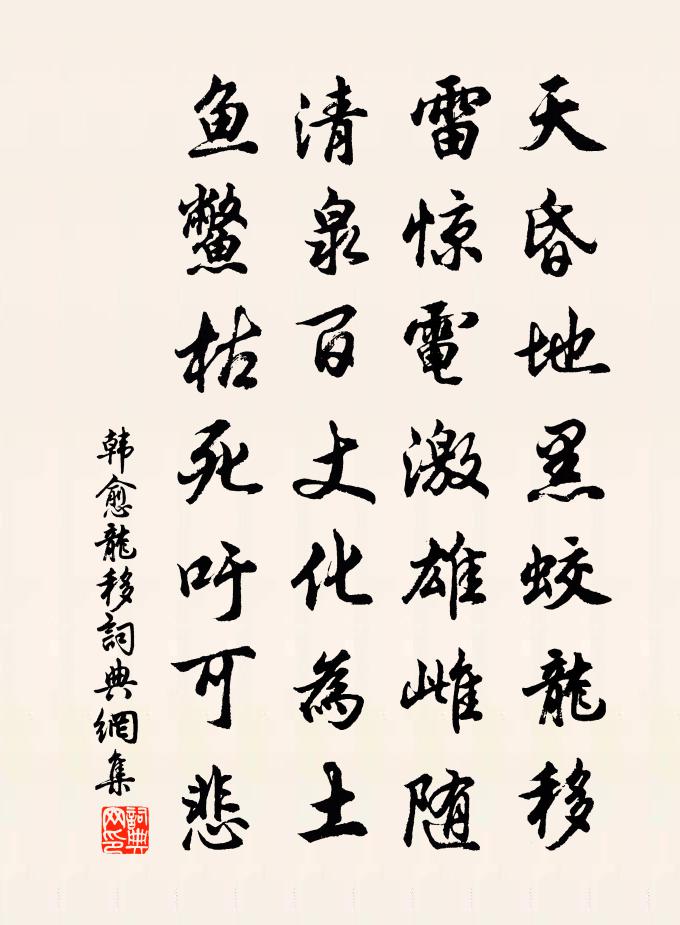 天昏地黑蛟龍移
雷惊電激雄雌随
清泉百丈化為土
鱼鳖枯死吁可悲
韩愈龍移詞典網集
詞典网印